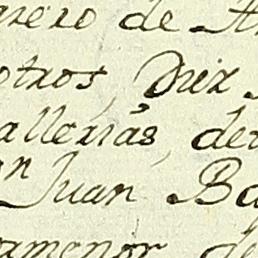 nero de A
otros, Diez
allerias, de
n Juan Ba
amenor de